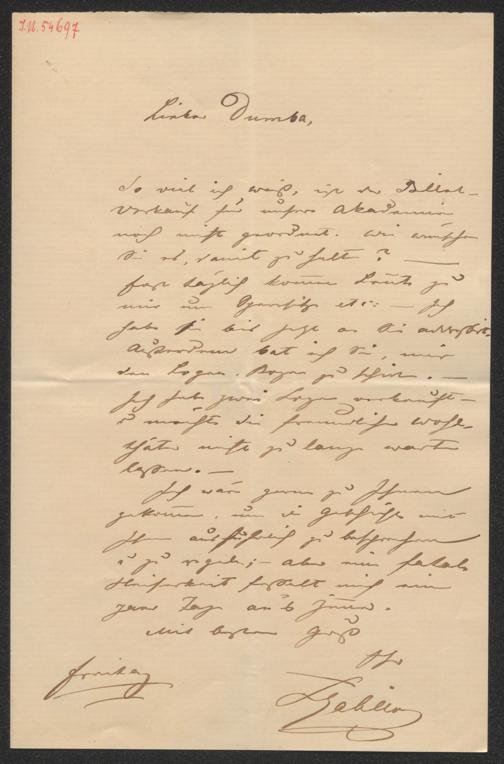 I.N. 54697
Lieber Dumba,
So viel ich weiß, ist der Billet-
verkauf für unsere Akademie
noch nicht geordnet. Wie wünschen
Sie es, damit zu halten? —
fast täglich kommen Leute zu
mir um Sperrsitze etc: — Ich
habe sie bis jetzt an Sie
Außerdem bat ich Sie, mir
den Logen-Bogen zu schicken. —
Ich habe zwei Logen verkauft —
u möchte die freundlichen Wohl-
thäter nicht zu lange warten
lassen. —
Ich wäre gerne zu Ihnen
gekommen, um die Geschichte mit
Ihnen ausführlich zu besprechen
u zu regeln; — aber eine fatale
Heiserkeit fesselt mich ein
paar Tage an's Zimmer.
Mit bestem Gruß
Ihr
Freitag
LGabillon